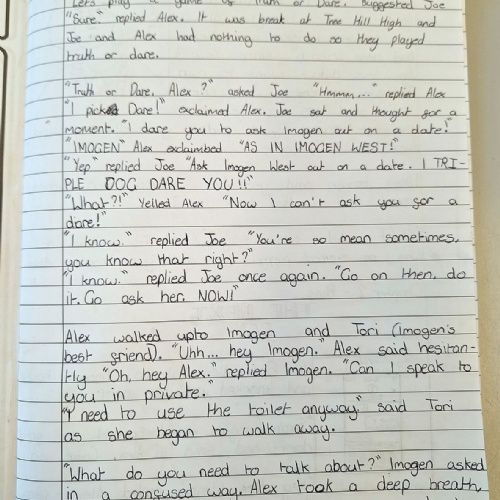 Let's play a game of Truth or Dare. suggested Joe
"Sure." replied Alex. It was break at Tree Hill High and
Joe and Alex had nothing to do so they played
truth or dare.
"Truth or Dare, Alex?" asked Joe "Hmmm..." replied Alex
"I pick Dare!" exclaimed Alex. Joe sat and thought for a
moment. "I dare you to ask Imogen out on a date!"
"IMOGEN" Alex exclaimbed "AS IN IMOGEN WEST!"
"Yep" replied Joe "Ask Imogen West out on a date. I TRI-
PLE DOG DARE YOU!!"
"What?!" Yelled Alex "Now I can't ask you for a
dare!"
"I know." replied Joe "You're so mean sometimes,
you know that right?"
"I know." replied Joe once again. "Go on then, do
it. Go ask her. NOW!"
Alex walked upto Imogen and Tori (Imogen's
best friend). "Uhh... hey Imogen." Alex said hesitan-
tly "Oh, hey Alex." replied Imogen. "Can I speak to
you in private."
"I need to use the toilet anyway." said Tori
as she began to walk away.
"What do you need to talk about?" Imogen asked
in a confused way. Alex took a deep breath